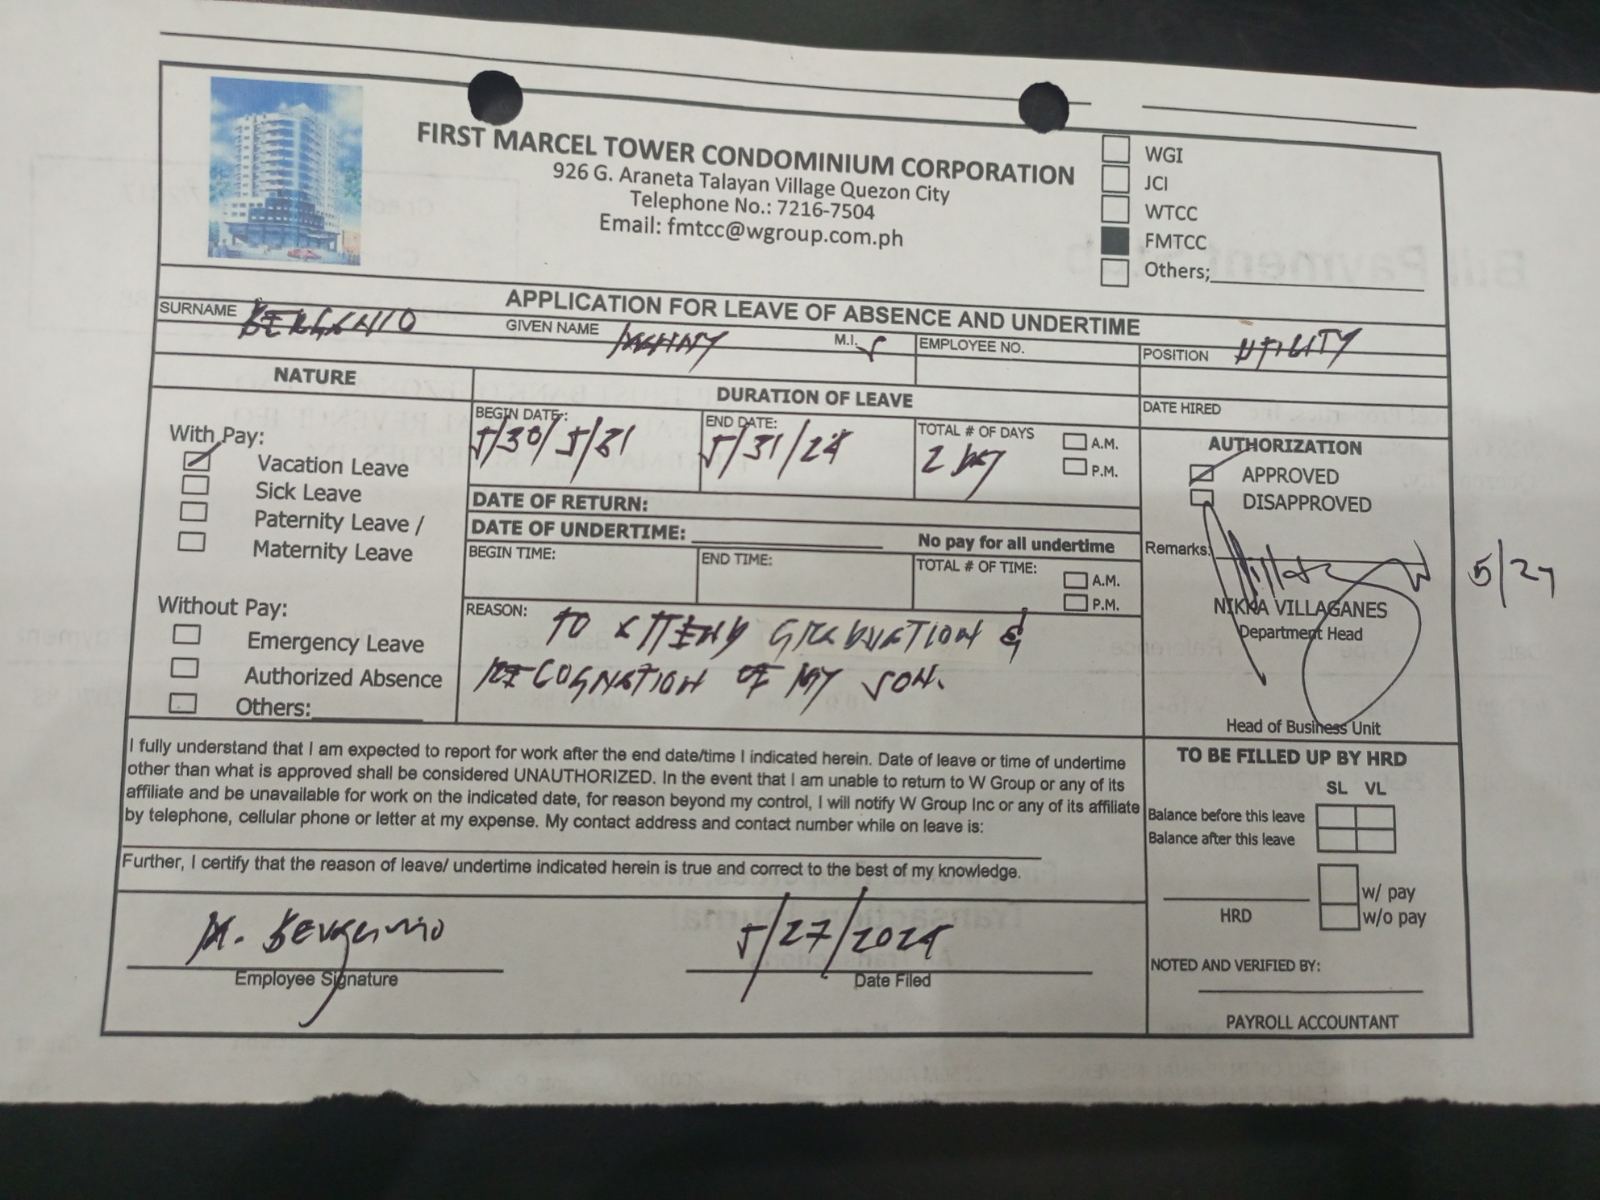 FIRST MARCEL TOWER CONDOMINIUM CORPORATION
926 G. Araneta Talayan Village Quezon City
Telephone No.: 7216-7504
Email: fmtcc@wgroup.com.ph
WGI
JCI
WTCC
FMTCC
Others;
APPLICATION FOR LEAVE OF ABSENCE AND UNDERTIME
SURNAME
GIVEN NAME
M.I. S
EMPLOYEE NO.
POSITION UTILITY
NATURE
DURATION OF LEAVE
DATE HIRED
With Pay:
Vacation Leave
Sick Leave
Paternity Leave /
Maternity Leave
Without Pay:
Emergency Leave
Authorized Absence
Others:
BEGIN DATE: 5/30/ 5/31
END DATE: 5/31/24
TOTAL # OF DAYS 2 DAY
A.M.
P.M.
DATE OF RETURN:
DATE OF UNDERTIME: No pay for all undertime
BEGIN TIME:
END TIME:
TOTAL # OF TIME:
A.M.
P.M.
REASON: TO ATTEND GRADUATION &
RECOGNATION OF MY SON.
AUTHORIZATION
APPROVED
DISAPPROVED
Remarks:
5/27
NIKKA VILLAGANES
Department Head
Head of Business Unit
I fully understand that I am expected to report for work after the end date/time I indicated herein. Date of leave or time of undertime
other than what is approved shall be considered UNAUTHORIZED. In the event that I am unable to return to W Group or any of its
affiliate and be unavailable for work on the indicated date, for reason beyond my control, I will notify W Group Inc or any of its affiliate
by telephone, cellular phone or letter at my expense. My contact address and contact number while on leave is:
Further, I certify that the reason of leave/ undertime indicated herein is true and correct to the best of my knowledge.
Employee Signature
5/27/2024
Date Filed
TO BE FILLED UP BY HRD
SL VL
Balance before this leave
Balance after this leave
w/ pay
w/o pay
HRD
NOTED AND VERIFIED BY:
PAYROLL ACCOUNTANT